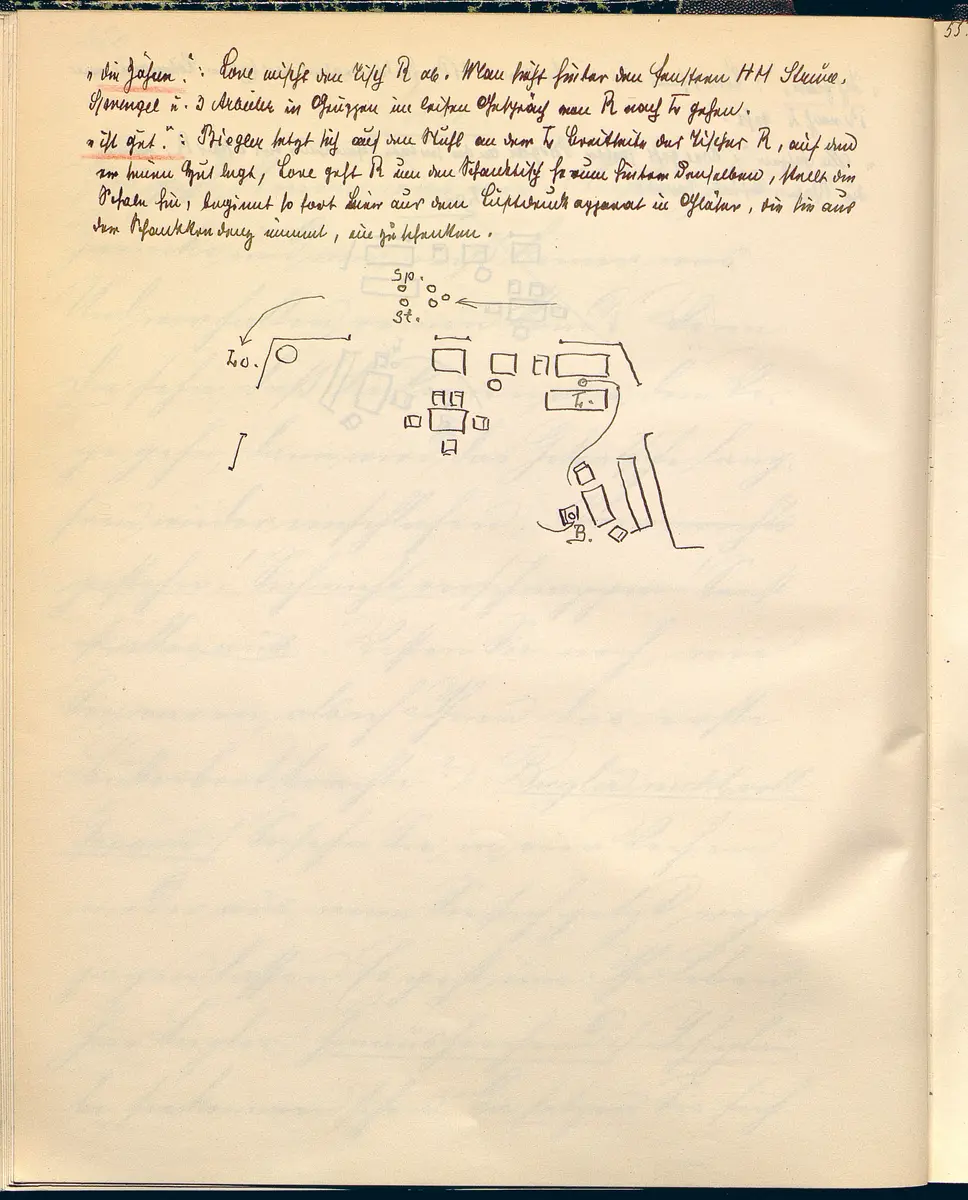 „die Zähne.“: Lore wischt den Tisch R ab. Man sieht hinter den Fenstern HM Strüve,
Sprengel u. 3 Arbeiter in Gruppen im leisen Gespräch von R nach L gehen.
„ist gut.“: Biegler setzt sich auf den Stuhl an der L Breitseite des Tisches R, auf den
er seinen Hut legt, Lore geht R um den Schanktisch herum hinter denselben, stellt die
Schale hin, beginnt sofort Bier aus dem Luftdruckapparat in Gläser, die sie aus
der Schankkredenz nimmt, einzuschenken.
Sp.
St.
Lo.
L.
B.
55.